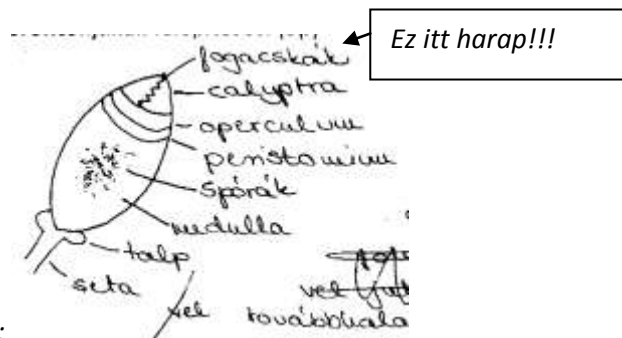 Ez itt harap!!!
fogacskák
calyptra
operculum
peristomium
spórák
medulla
talp
seta
vek
továbbhala